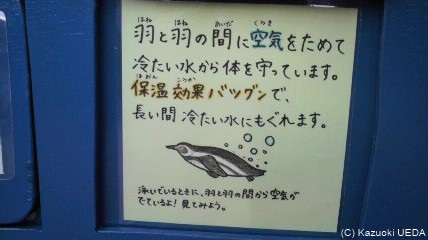 羽と羽の間に空気をためて
冷たい水から体を守っています。
保温効果バツグンで、
長い間 冷たい水にもぐれます。
泳いでいるときに、羽と羽の間から空気が
でているよ！見てみよう。
(C) Kazuoki UEDA